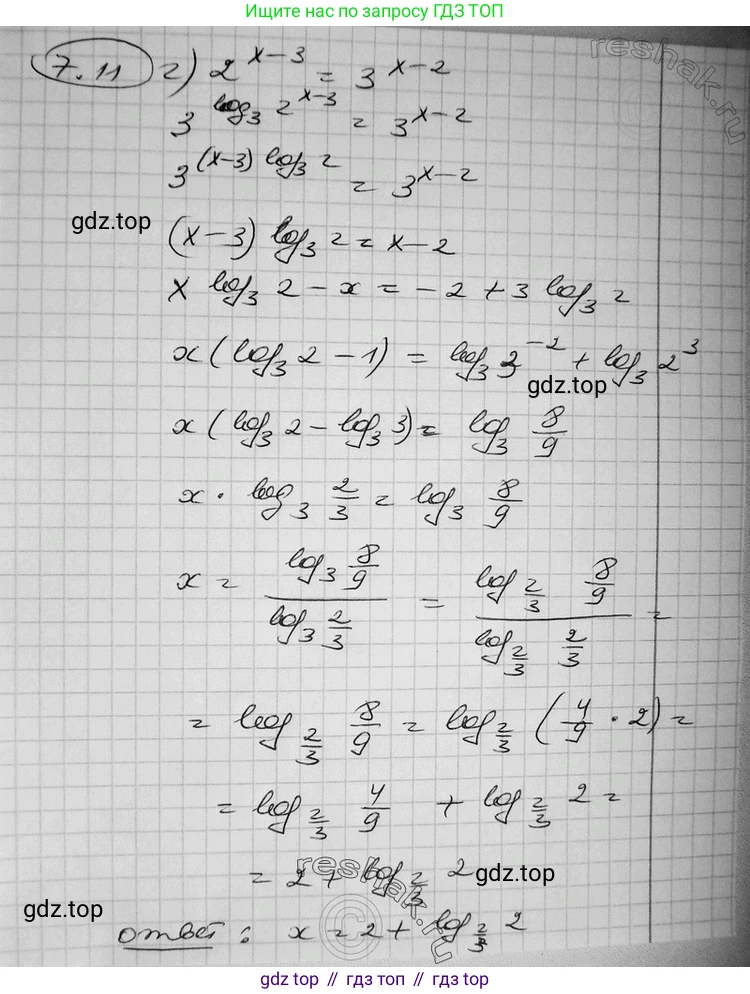 Ищите нас по запросу ГДЗ ТОП
7.11 г) 2^(x-3) = 3^(x-2)
3^(log₃ 2^(x-3)) = 3^(x-2)
3^((x-3) log₃ 2) = 3^(x-2)
gdz.top
(x-3) log₃ 2 = x-2
x log₃ 2 - x = -2 + 3 log₃ 2
x(log₃ 2 - 1) = log₃ 3^(-2) + log₃ 2³
gdz.top
x(log₃ 2 - log₃ 3) = log₃ 8/9
x · log₃ 2/3 = log₃ 8/9
x = (log₃ 8/9)/(log₃ 2/3) = (log_(2/3) 8/9)/(log_(2/3) 2/3) =
= log_(2/3) 8/9 = log_(2/3) (4/9 · 2) =
= log_(2/3) 4/9 + log_(2/3) 2 =
= 2 + log_(2/3) 2
gdz.top
gdz.top
ответ: x = 2 + log_(2/3) 2
reshak.ru
reshak.ru
©
gdz top // гдз топ // gdz.top